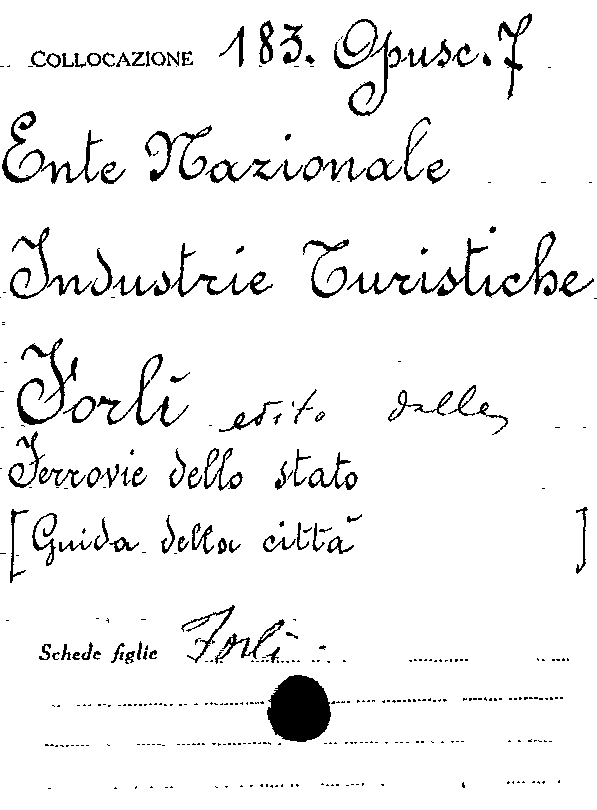 COLLOCAZIONE 183. Opusc. 7
Ente Nazionale
Industrie Turistiche
Forlì edito dalle
Ferrovie dello stato
[Guida della città ]
Schede figlie Forlì.